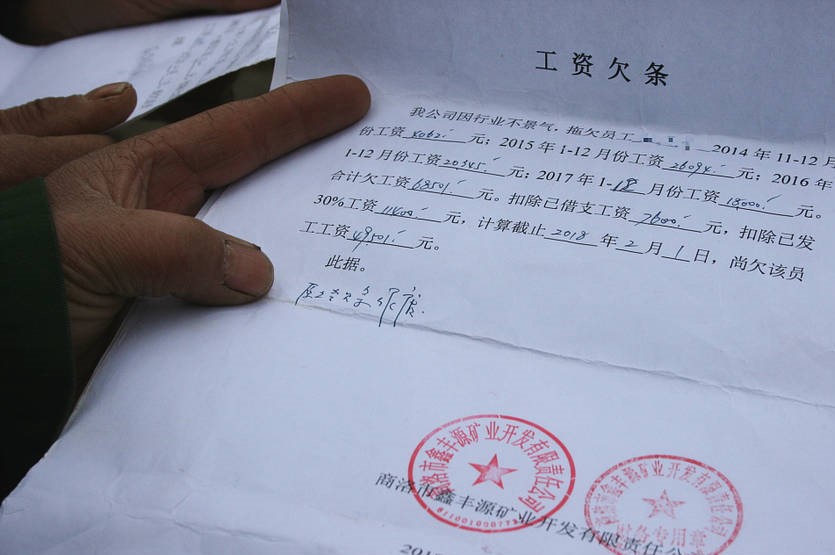 工资欠条
我公司因行业不景气，拖欠员工 2014年11-12月
份工资4062元；2015年1-12月份工资26094元；2016年
1-12月份工资20345元；2017年1-18月份工资18000元。
合计欠工资68501元。扣除已借支工资7600元，扣除已发
30%工资11400元，计算截止2018年2月1日，尚欠该员
工工资49501元。
此据。
作废
商洛市鑫丰源矿业开发有限责任公司
商洛市鑫丰源矿业开发有限责任公司
财务专用章
商洛市鑫丰源矿业开发有限责任公
201